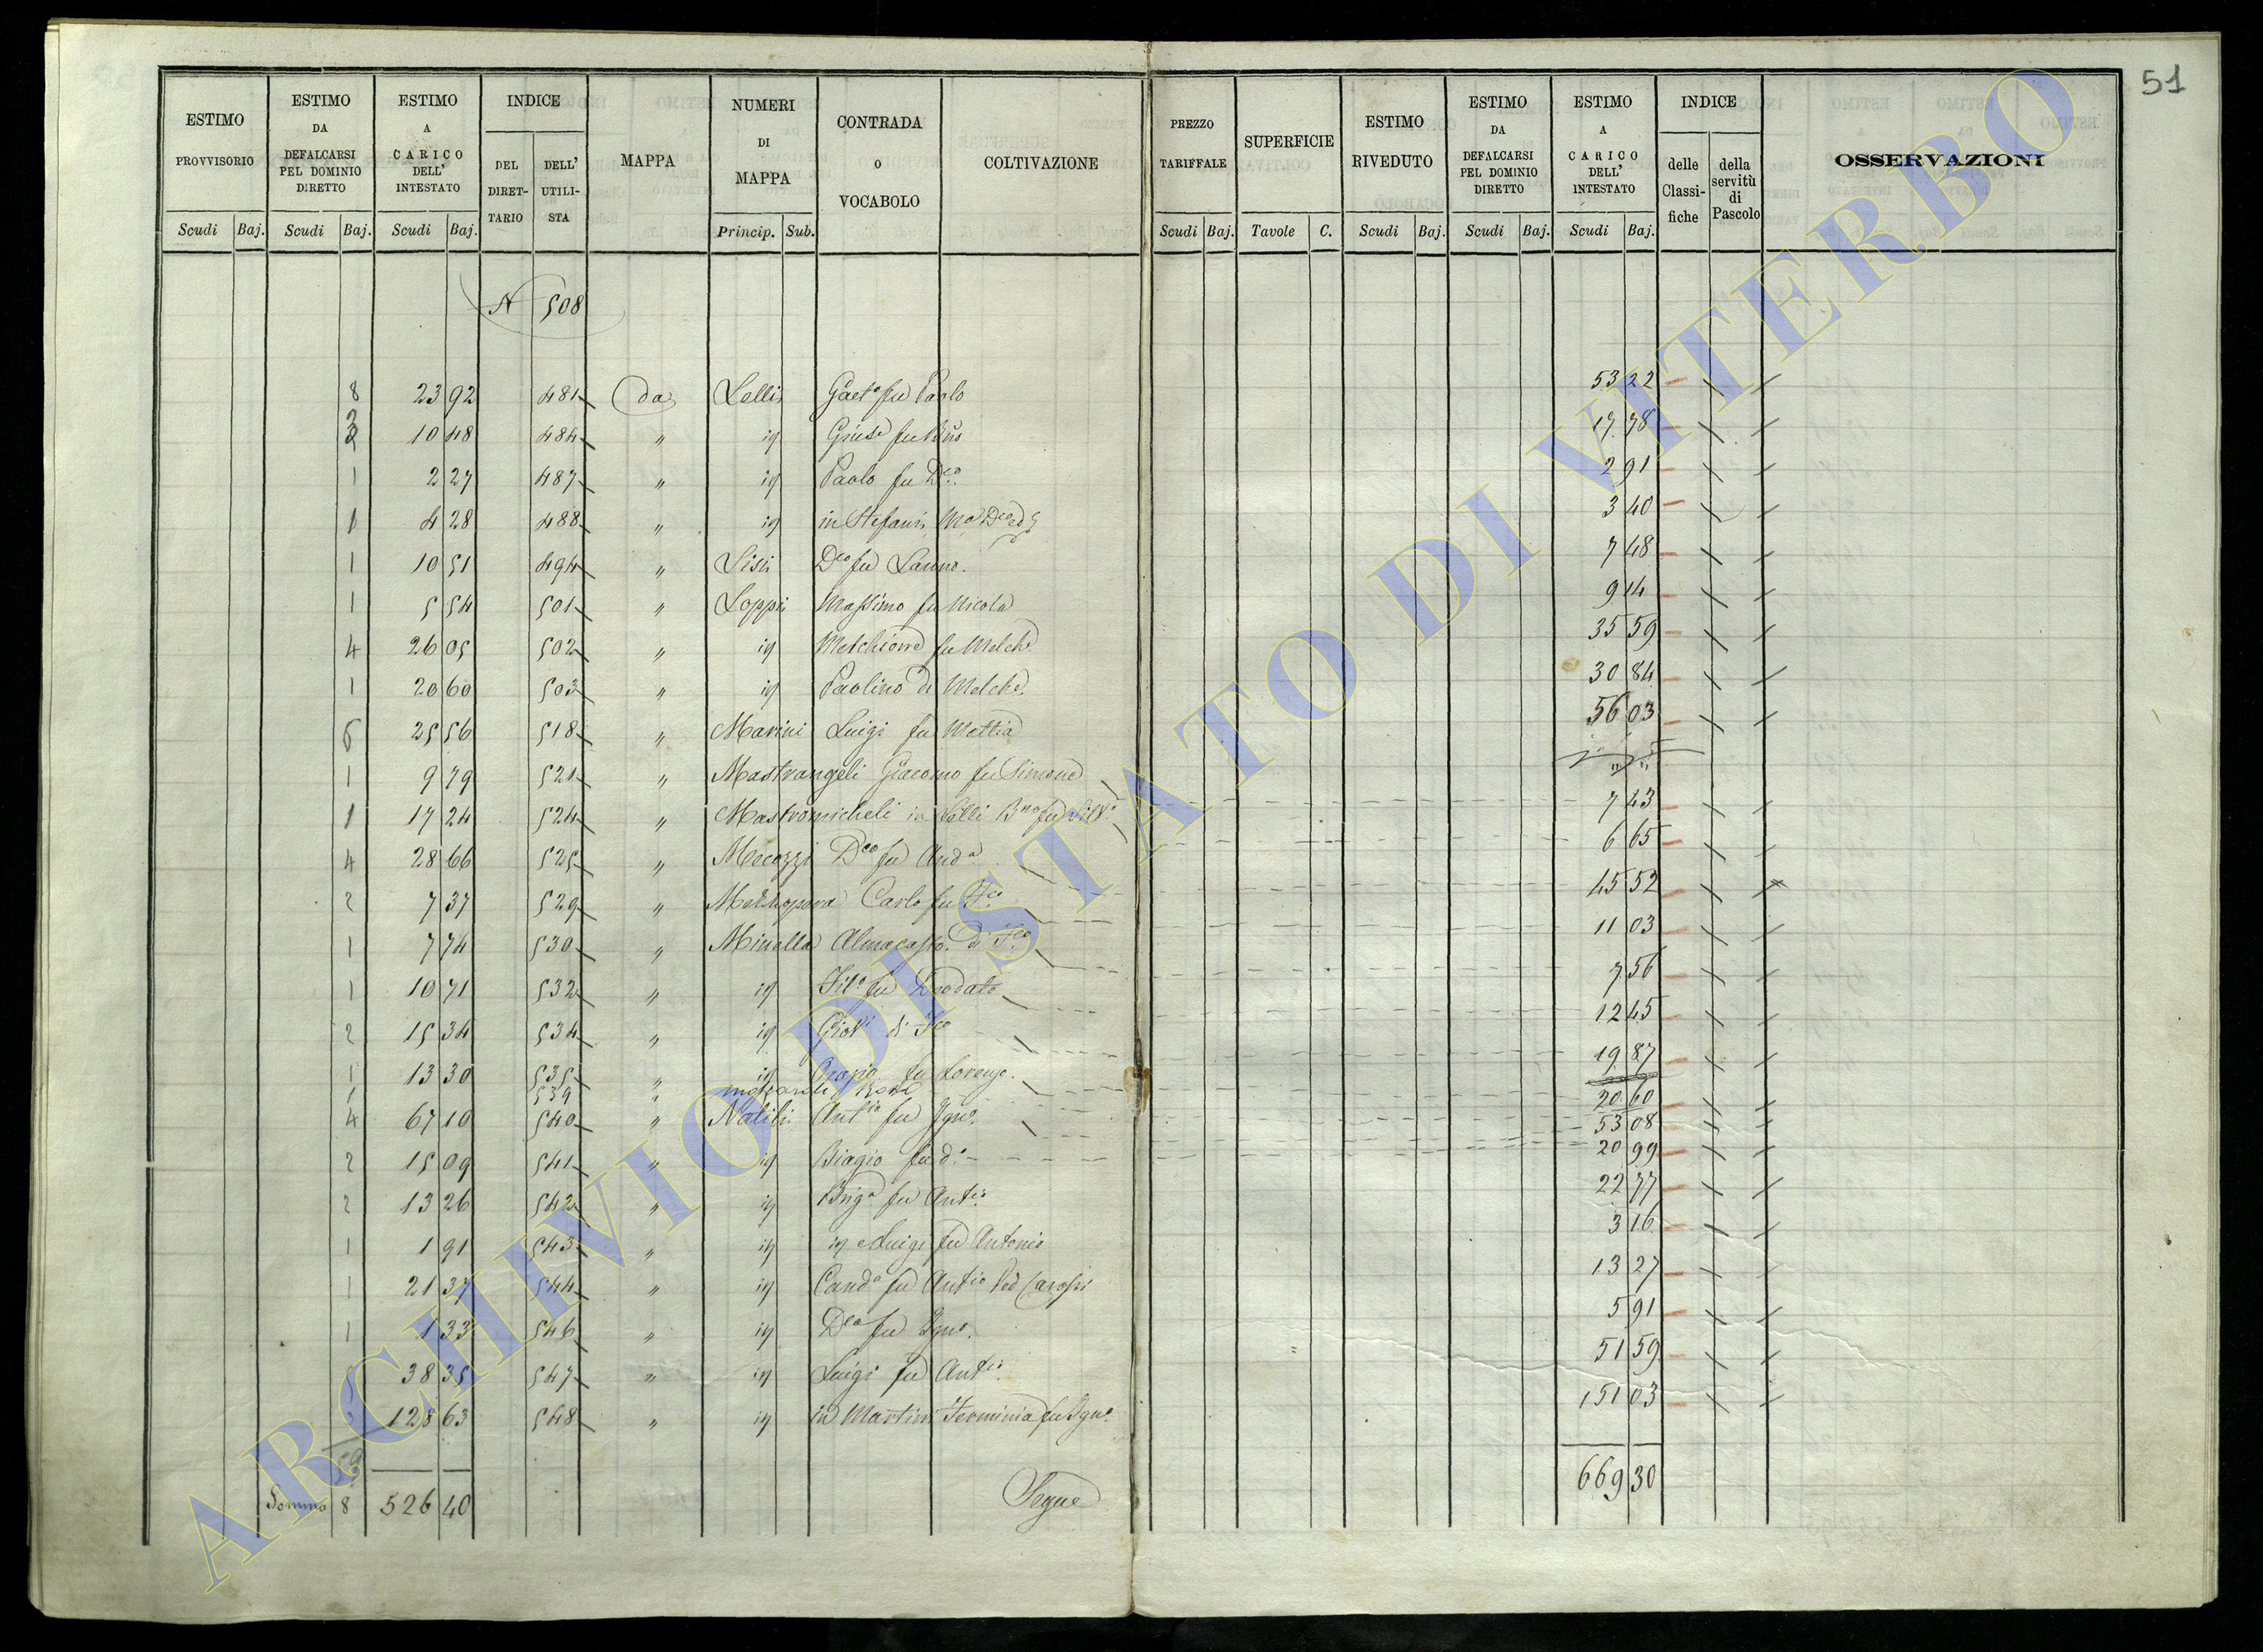 51
ESTIMO PROVVISORIO
ESTIMO DA DEFALCARSI PEL DOMINIO DIRETTO
ESTIMO A CARICO DELL' INTESTATO
INDICE
DEL DIRETTARIO
DELL' UTILISTA
MAPPA
NUMERI DI MAPPA
CONTRADA O VOCABOLO
COLTIVAZIONE
PREZZO TARIFFALE
SUPERFICIE
ESTIMO RIVEDUTO
ESTIMO DA DEFALCARSI PEL DOMINIO DIRETTO
ESTIMO A CARICO DELL' INTESTATO
INDICE
delle Classifiche
della servitù di Pascolo
OSSERVAZIONI
Scudi Baj. Scudi Baj. Scudi Baj. Princip. Sub. Scudi Baj. Tavole C. Scudi Baj. Scudi Baj. Scudi Baj.
N 508
8 23 92 481 da Lelli Gaet° fu Paolo 53 22
10 48 484 " id 17 78
1 2 27 487 " id Paolo fu Dco 2 91
1 4 28 488 " id in Stefani 3 40
1 10 51 494 " Lisi Dco fu 7 48
1 5 54 501 " Loppi Massimo fu Nicola 9 14
4 26 05 502 " id Melchiorre fu Melche 35 59
1 20 60 503 " id Paolino di Melche. 30 84
6 25 56 518 " Marini Luigi fu Mattia 56 03
1 9 79 521 " Mastrangeli Giacomo fu Simone " "
1 17 24 524 " Mastromicheli in Lelli 7 43
4 28 66 525 " Mecozzi Dco fu And° 6 65
2 7 37 529 " Carlo fu Fco 45 52
1 7 74 530 " Minella di Fco 11 03
1 10 71 532 " id Fil° fu Deodato 7 56
2 15 34 534 " id Giov¹ di Fco 12 45
1 13 30 535 " id Orazio fu Lorenzo. 19 87
1 539 " 20 60
4 67 10 540 " Natili Ant° fu Igno. 53 08
2 15 09 541 " id Biagio fu d° 20 99
2 13 26 542 " id Brig° fu Ant° 22 77
1 1 91 543 " id id Luigi fu Antonio 3 16
1 21 37 544 " id Cand° fu Ant° 13 27
1 1 33 546 " id Dco fu Igno. 5 91
38 35 547 " id Luigi fu Ant° 51 59
128 63 548 " id in Martini Ferminia fu Igno. 151 03
59
Somma 8 526 40 Segue 669 30
ARCHIVIO DI STATO DI VITERBO